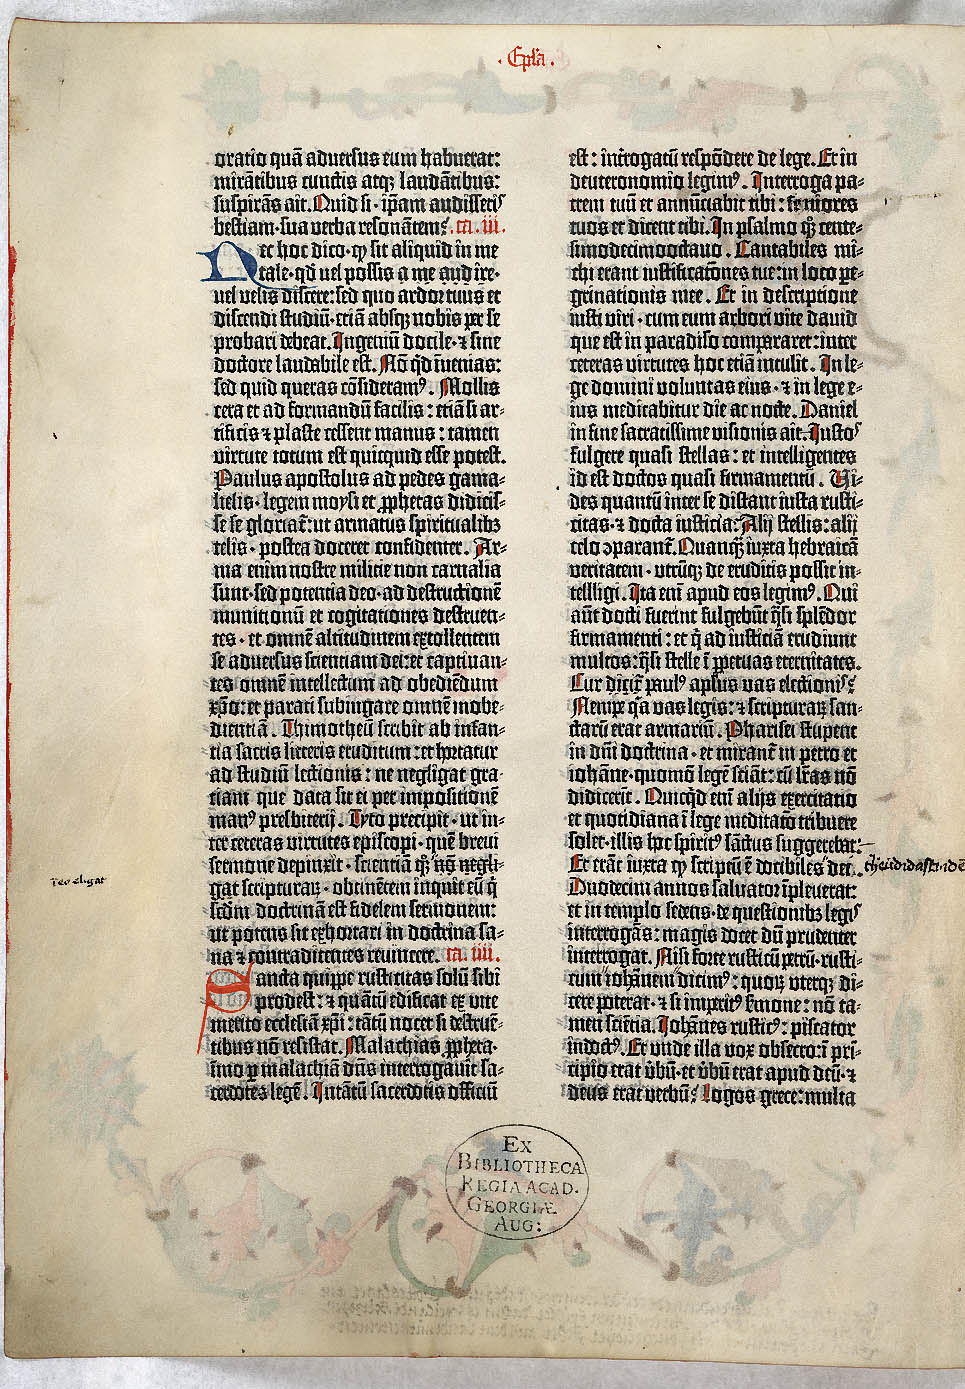 · Ep̄la ·
oratio quā aduersus eum habuerat:
mirātibus cunctis atqꝫ laudātibus:
suspirās ait. Quid si · ip̄am audissetis
bestiam · sua verba resonātem; ca. iii.
Nec hoc dico · ꝙ sit aliquid in me
tale · qd̄ vel possis a me audire ·
vel velis discere: sed quo ardor tuus et
discendi studiū · etiā absqꝫ nobis per se
probari debeat. Ingeniū docile · ⁊ sine
doctore laudabile est. Nō qd̄ inuenias:
sed quid queras cōsideramꝰ. Mollis
cera et ad formandū facilis: etiā si ar⸗
tificis ⁊ plaste cessent manus: tamen
virtute totum est quicquid esse potest.
Paulus apostolus ad pedes gama⸗
lielis · legem moysi et ꝓphetas didicis⸗
se se gloriat̄: ut armatus spiritualibꝫ
telis · postea doceret confidenter. Ar⸗
ma enim nostre milicie non carnalia
sunt · sed potentia deo · ad destructionē
munitionū et cogitationes destruen⸗
tes · et omnē altitudinem extollentem
se aduersus scientiam dei: et captiuan⸗
tes omnē intellectum ad obediēdum
xp̄o: et parati subiugare omnē inobe⸗
dientiā. Thimotheū scribit ab infan⸗
tia sacris litteris eruditum: et hortatur
ad studiū lectionis: ne negligat gra⸗
tiam que data sit ei per impositionē
manꝰ presbiterij. Tyto precipit · ut in⸗
ter ceteras virtutes episcopi · quē breui
sermone depinxit · scientiā qꝫ nō negli⸗
gat scripturaꝝ · obtinētem inquit eū q̄
scd̄m doctrinā est fidelem sermonem:
ut potens sit exhortari in doctrina sa⸗
na ⁊ contradicentes reuincere. ca. iiii.
Sancta quippe rusticitas solū sibi
prodest: ⁊ quātū edificat ex vite
merito ecclesiā xp̄i: tātū nocet si destruē⸗
tibus nō resistat. Malachias ꝓpheta ·
imo ꝑ malachiā dn̄s interrogauit sa⸗
cerdotes legē. Intātū sacerdotis officiū
est: int̄rogatū respōdere de lege. Et in
deuteronomio legimꝰ. Interroga pa⸗
trem tuū et annūciabit tibi: seniores
tuos et dicent tibi. In psalmo qꝫ cente⸗
simodecimooctauo. Cantabiles mi⸗
chi erant iustificatōnes tue: in loco pe⸗
grinationis mee. Et in descriptione
iusti viri · cum eum arbori vite dauid
que est in paradiso compararet: inter
ceteras virtutes hoc etiā intulit. In le⸗
ge domini voluntas eius · ⁊ in lege e⸗
ius meditabitur die ac nocte. Daniel
in fine sacratissime visionis ait. Iustos
fulgere quasi stellas: et intelligentes
id est doctos quasi firmamentū. Vi⸗
des quantū inter se distant iusta rusti⸗
citas · ⁊ docta iusticia: Alij stellis: alij
celo ↄparant̄. Quanqꝫ iuxta hebraicā
veritatem · utrūqꝫ de eruditis possit in⸗
telligi. Ita enī apud eos legimꝰ. Qui
aūt docti fuerint fulgebūt q̄si splēdor
firmamenti: et q̄ ad iusticiā erudiunt
multos: q̄si stelle ī ꝑpetuas eternitates.
Cur dicit̄ paulꝰ apl̄us vas electionis;
Nempe q̄a vas legis: ⁊ scripturaꝝ san⸗
ctarū erat armariū. Pharisei stupent
in dn̄i doctrina · et mirant̄ in petro et
iohāne · quomō legē sciāt: cū lr̄as nō
didicerīt. Quicqd̄ enī alijs exercitatio
et quotidiana ī lege meditatō tribuere
solet · illis hoc spiritꝰ sāctus suggerebat:
Et erāt iuxta ꝙ scriptū ē docibiles dei.
Duodecim annos saluator īpleuerat:
et in templo senes · de questionibꝫ legis
interrogās: magis docet dū prudenter
interrogat. Nisi forte rusticū petrū · rusti⸗
cum iohānem dicimꝰ: quoꝝ uterqꝫ di⸗
cere poterat · ⁊ si imperitꝰ sermone: nō ta⸗
men sciētia. Iohānes rusticꝰ: piscator
indoctꝰ. Et unde illa vox obsecro: ī pri⸗
cipio erat v̄bū · et v̄bū erat apud deū · ⁊
deus erat verbū; Logos grece: multa
EX
BIBLIOTHECA
REGIA ACAD.
GEORGIÆ
AUG: